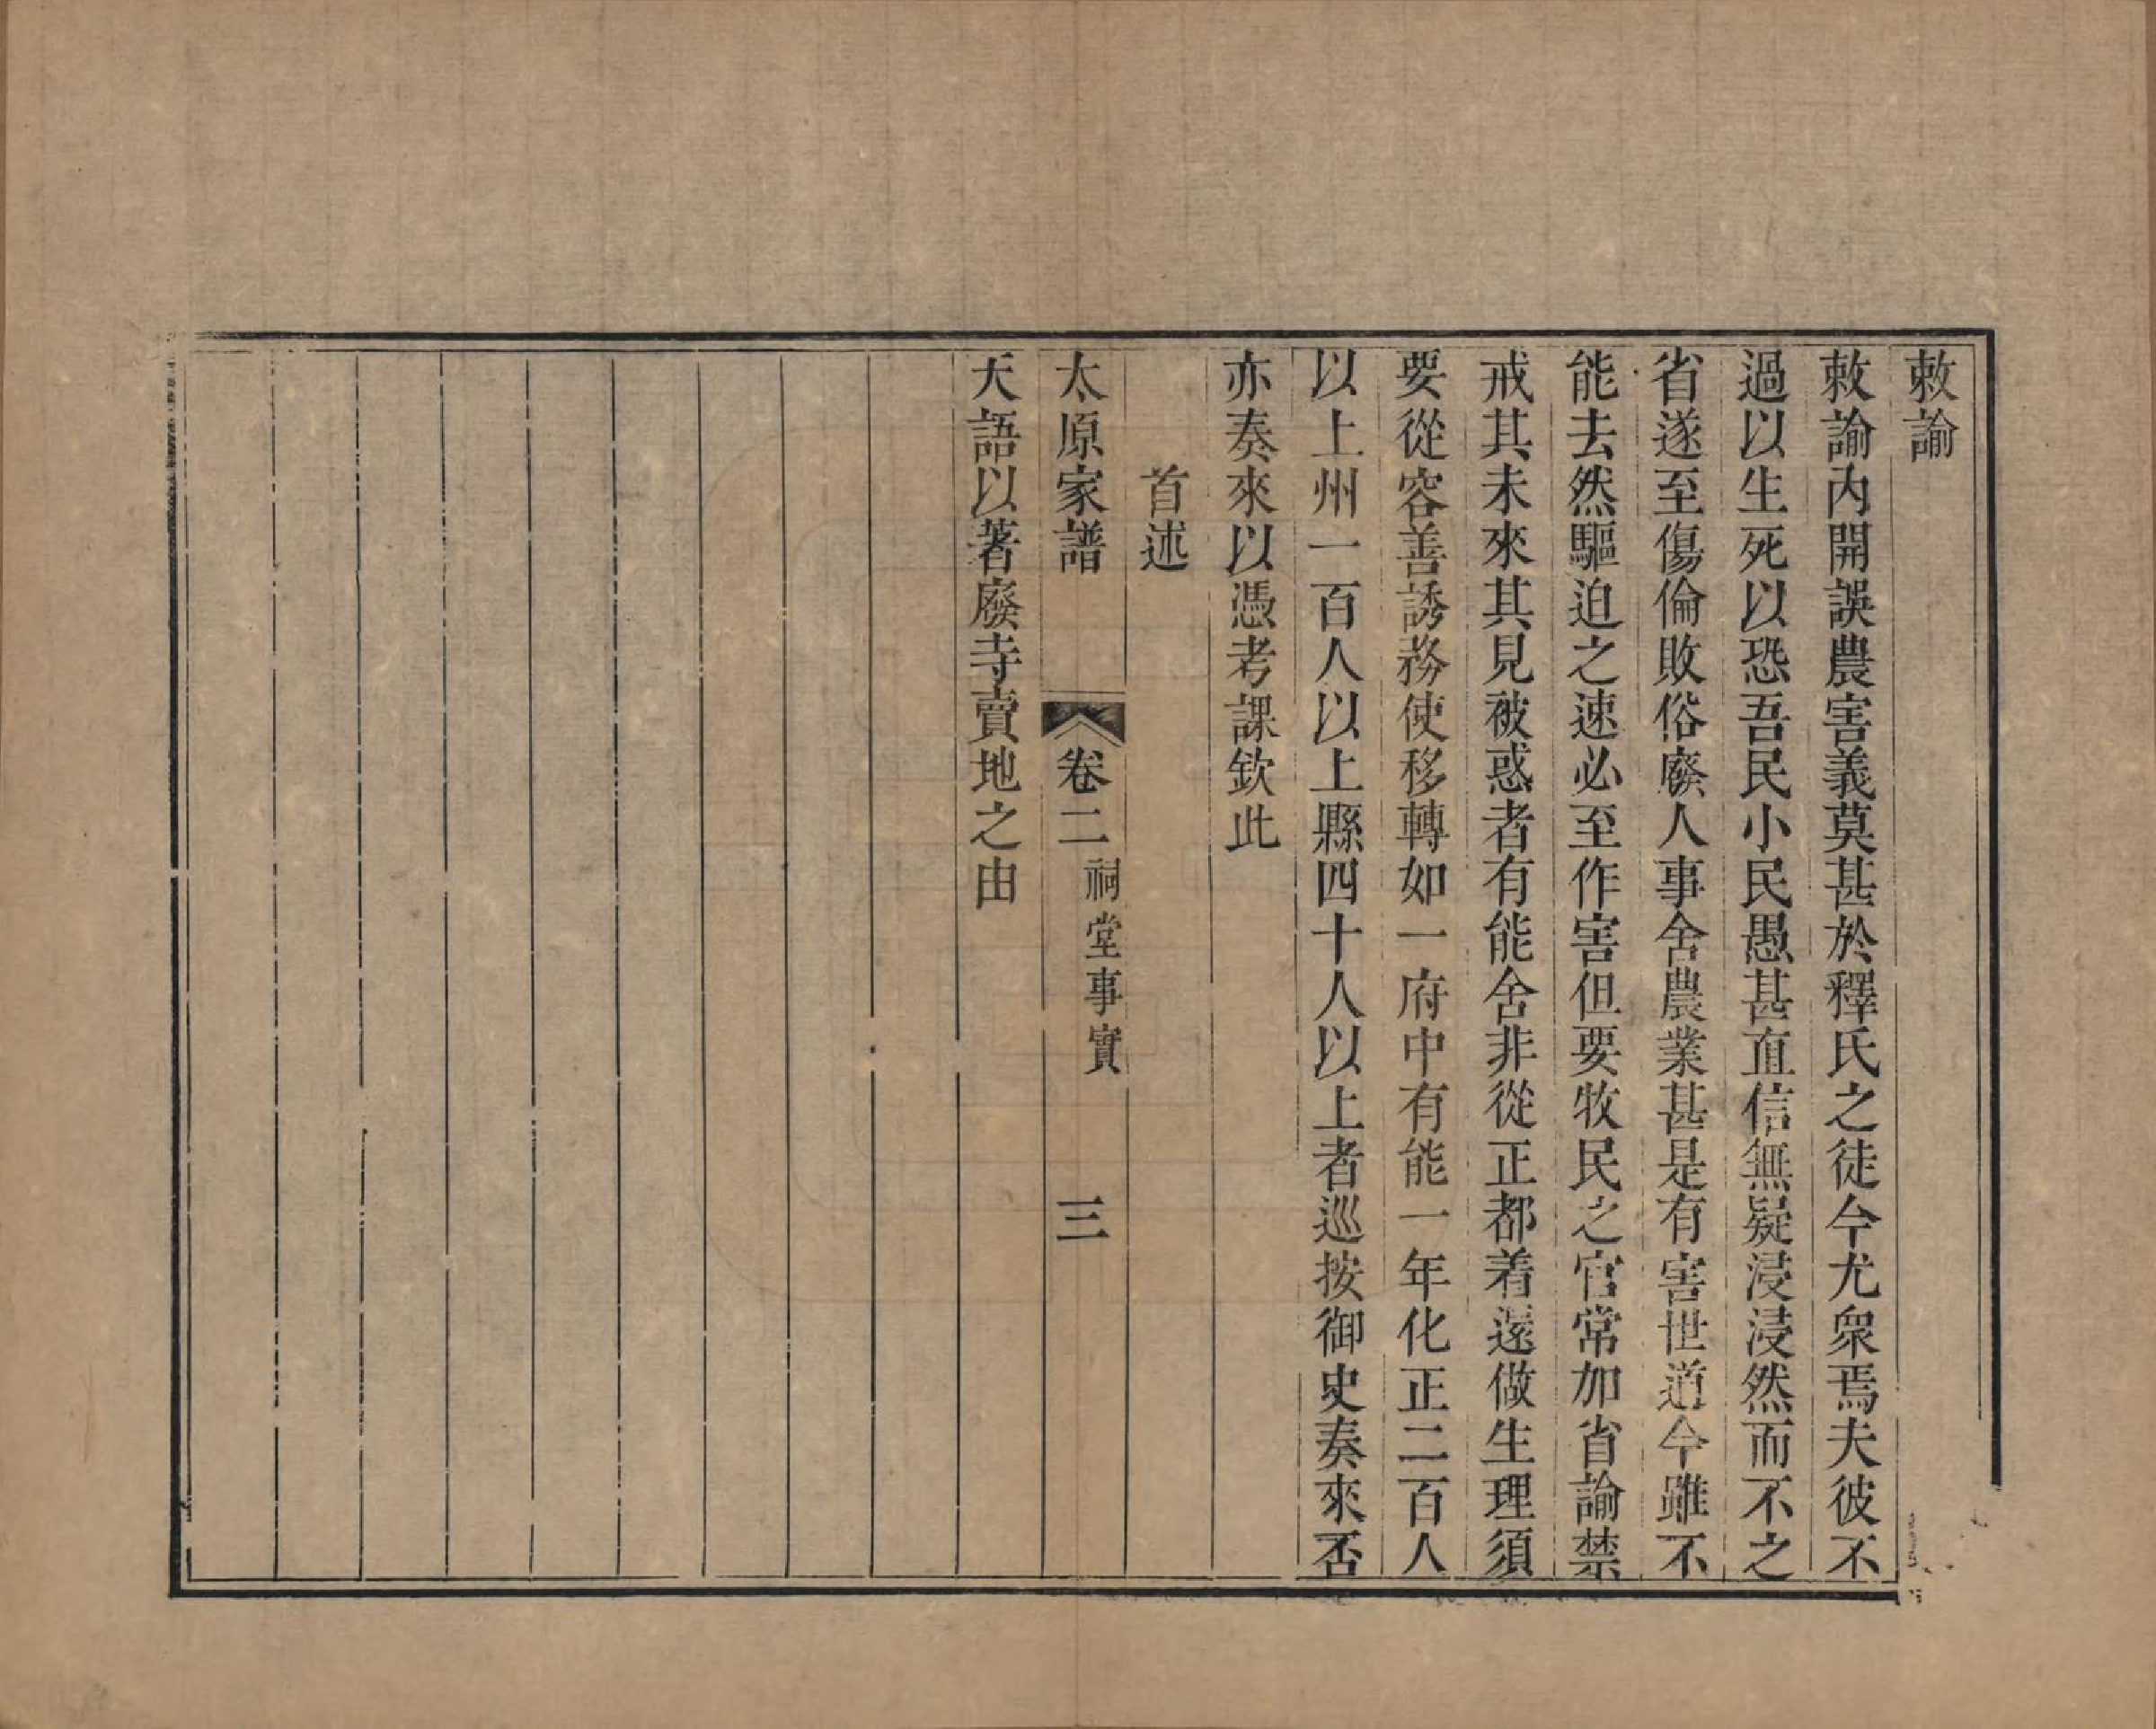 敕諭
敕諭內開誤農害義莫甚於釋氏之徒今尤衆焉夫彼不
過以生死以恐吾民小民愚甚直信無疑浸浸然而不之
省遂至傷倫敗俗廢人事舍農業甚是有害世道今雖不
能去然驅迫之速必至作害但要牧民之官常加省諭禁
戒其未來其見被惑者有能舍非從正都着還做生理須
要從容善誘務使移轉如一府中有能一年化正二百人
以上州一百人以上縣四十人以上者巡按御史奏來否
亦奏來以憑考課欽此
首述
太原家譜 卷二 祠堂事實 三
天語以著廢寺賣地之由